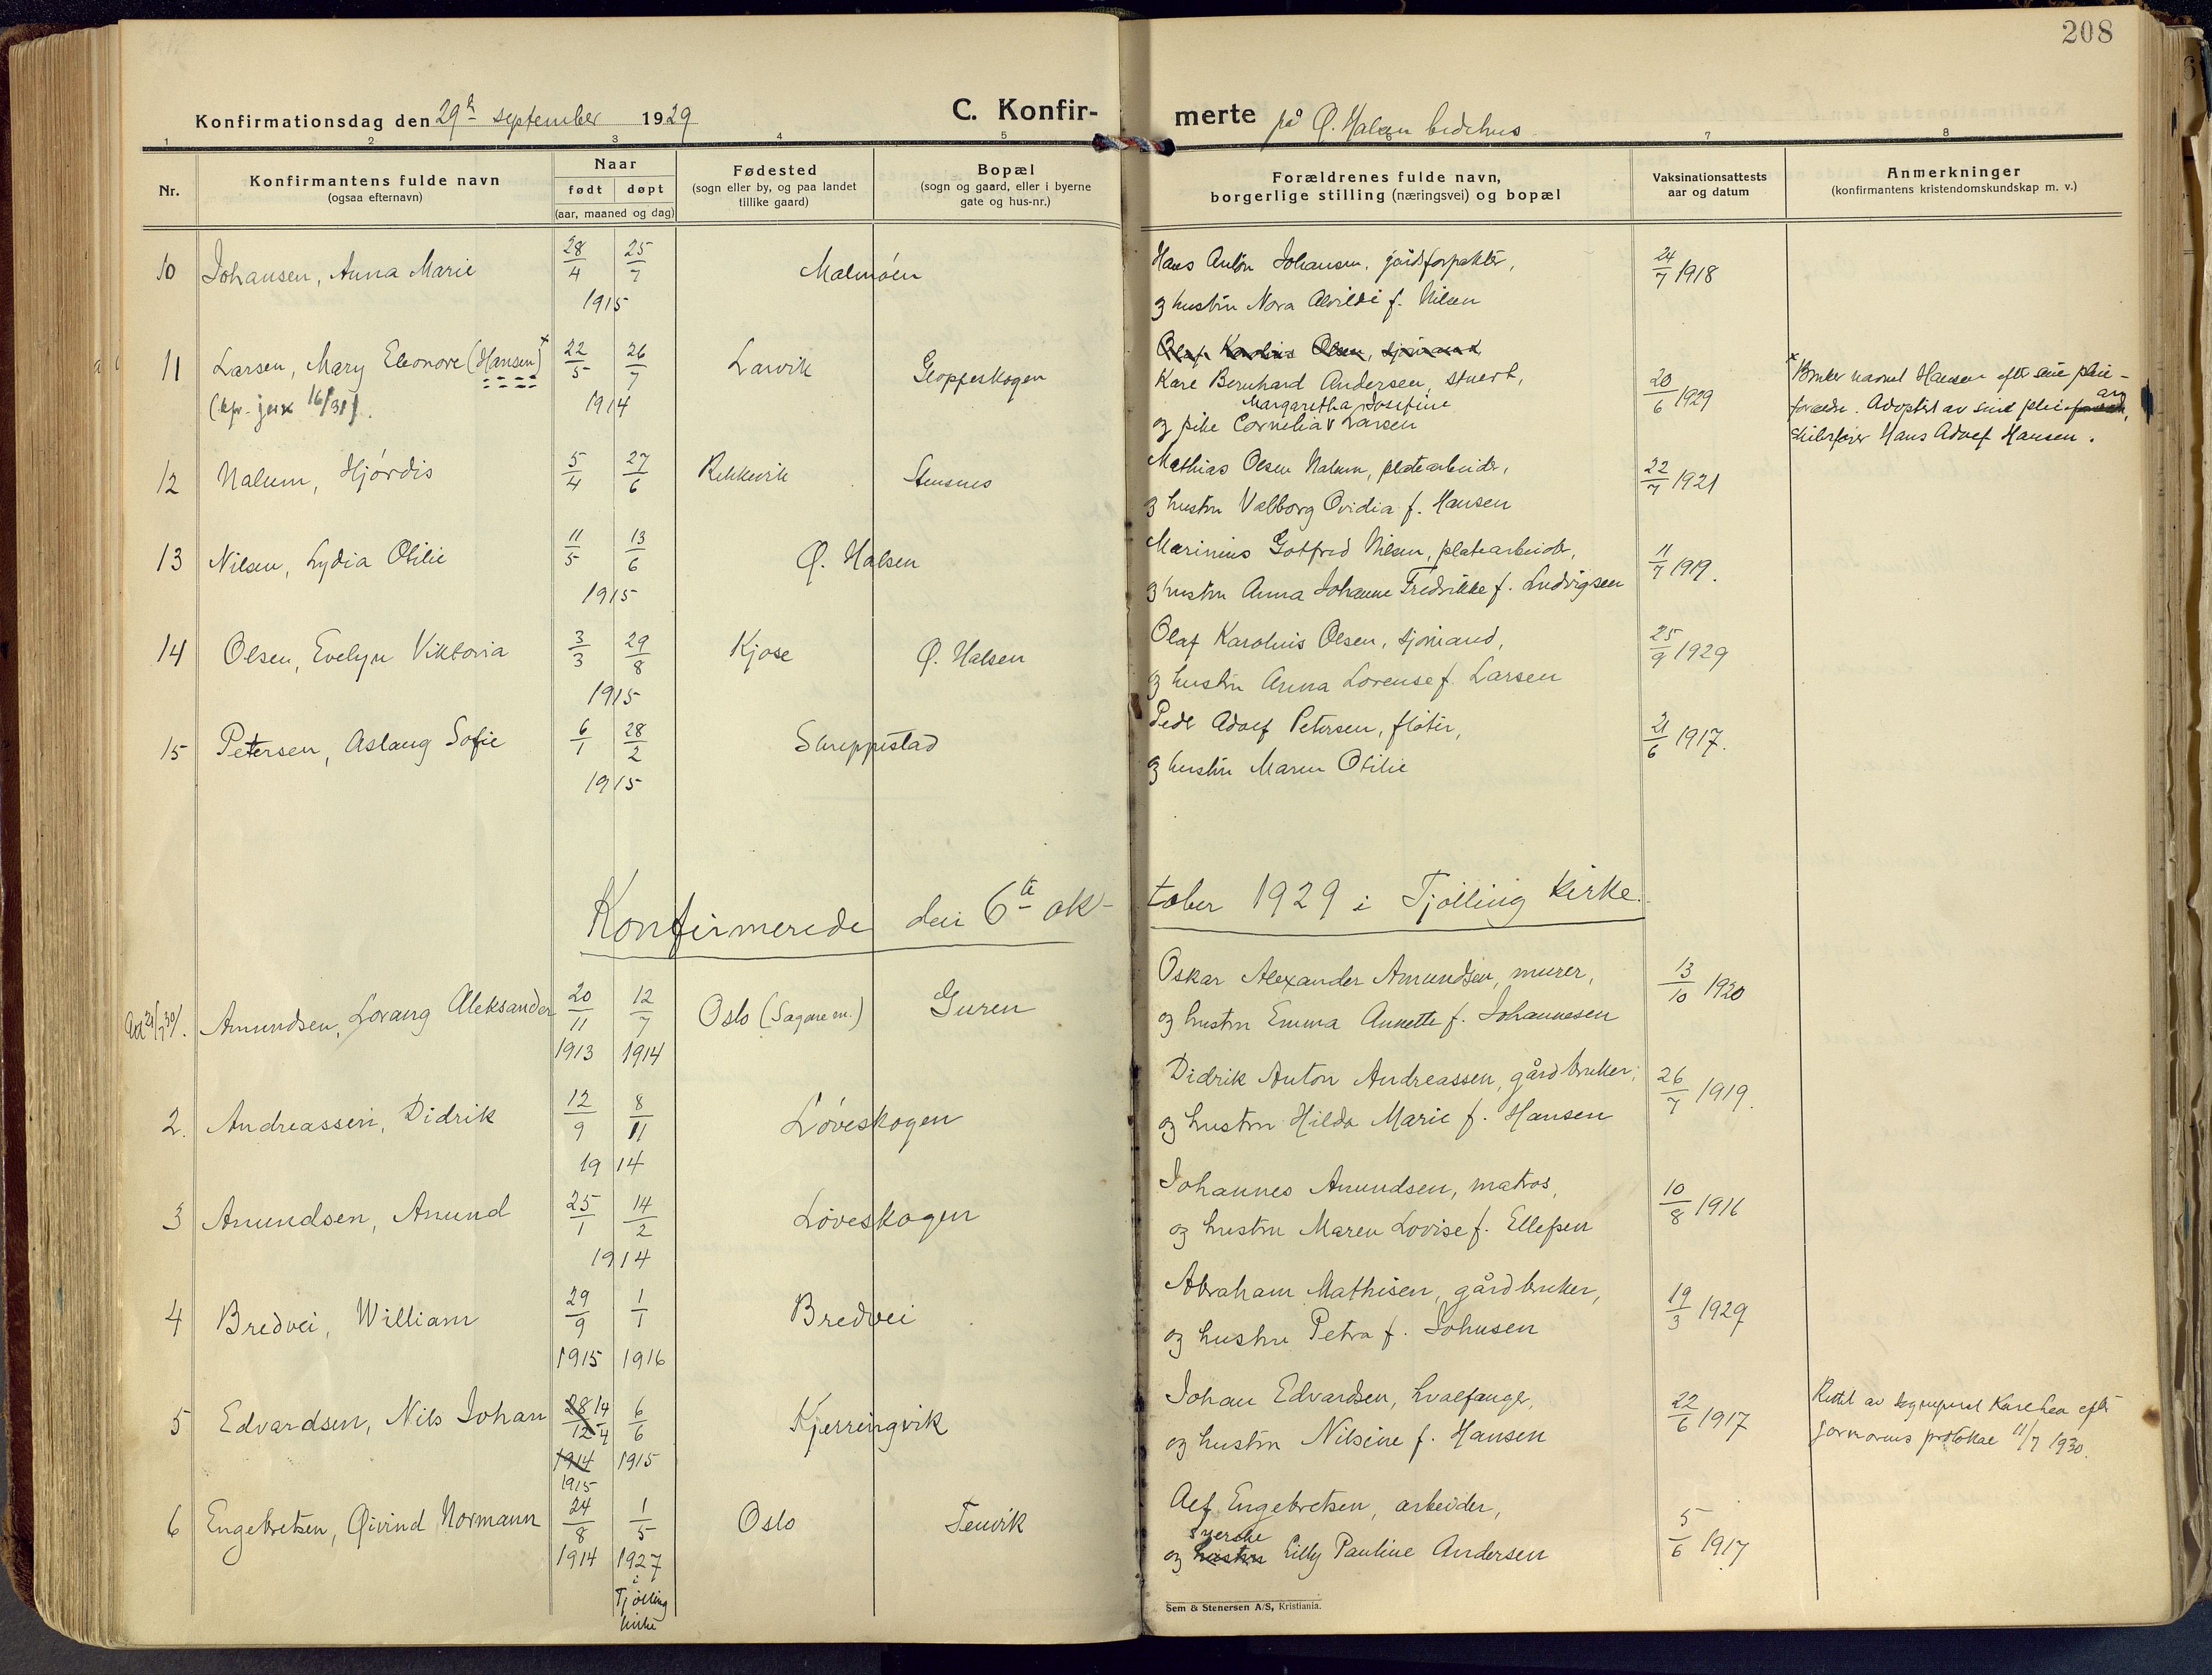 208
Konfirmationsdag den 29de september 1929
C. Konfir-
merte på Ø. Halsen bedehus
1 2 3 4 5 7 8
Nr.
Konfirmantens fulde navn
(ogsaa efternavn)
Naar
født døpt
(aar, maaned og dag)
Fødested
(sogn eller by, og paa landet
tillike gaard)
Bopæl
(sogn og gaard, eller i byerne
gate og hus-nr.)
Forældrenes fulde navn,
borgerlige stilling (næringsvei) og bopæl
Vaksinationsattests
aar og datum
Anmerkninger
(konfirmantens kristendomskundskap m. v.)
10 Johansen, Anna Marie 28/4 25/7 1915 Malmøen
Hans Anton Johansen, gårdforpakter, 24/7 1918
og hustru Nora Alvilde f. Nilsen
11 Larsen, Mary Eleonore (Hansen)x 22/5 26/7 1914 Larvik Gloppeskogen
16/31
Olaf Karolius Olsen, sjømand,
Karl Bernhard Andersen, stuert, 20/6 1929
Margaretha Josefine
og pike Cornelia v Larsen
x Bruker navnet Hansen efter sine pleie-
forældre. Adoptert av sine pleie
Hans Adolf Hansen.
12 Nalum, Hjørdis 5/4 27/6 Rekkevik Stensnes
Mathias Olsen Nalum, platearbeider, 22/7 1921
og hustru Valborg Ovidia f. Hansen
13 Nilsen, Lydia Otilie 11/5 13/6 1915 Ø. Halsen
Marinius Gotfred Nilsen, platearbeider, 11/7 1919.
og hustru Anna Johanne Fredrikke f. Ludvigsen
14 Olsen, Evelyn Viktoria 3/3 29/8 1915 Kjose Ø. Halsen
Olaf Karolius Olsen, sjømand, 25/9 1929
og hustru Anna Lorense f. Larsen
15 Petersen, Aslaug Sofie 6/1 28/2 1915 Skreppestad
Peder Adolf Petersen, fløter, 21/6 1917.
og hustru Maren Otilie
Konfirmerede den 6te ok-
tober 1929 i Tjølling Kirke.
Amundsen, Lorang Aleksander 20/11 1913 12/7 1914 Oslo (Sagene m.) Guren
Oskar Alexander Amundsen, murer, 13/10 1920
og hustru Emma Annette f. Johannesen
2. Andreassen, Didrik 12/9 8/11 1914 Løveskogen
Didrik Anton Andreassen, gårdbruker, 26/7 1919.
og hustru Hilda Marie f. Hansen
3 Amundsen, Amund 25/1 14/2 1914 Løveskogen
Johannes Amundsen, matros, 10/8 1916
og hustru Maren Lovise f. Ellefsen
4 Bredvei, William 29/9 1915 1/1 1916 Bredvei
Abraham Mathisen, gårdbruker, 19/3 1929
og hustru Petra f. Johnsen
5 Edvardsen, Nils Johan 28/12 14/4 1914 1915 6/6 1915 Kjerringvik
Johan Edvardsen, hvalfanger, 22/6 1917
og hustru Nilsine f. Hansen
Rettet av sogneprest efter
jormorens protokol 11/7 1930.
6 Engebretsen, Øivind Normann 24/8 1914 1/5 1927 Oslo Tenvik
i
Tjølling
kirke
Alf Engebretsen, arbeider, 5/6 1917
syerske
og hustru Lilly Pauline Andersen
Sem & Stenersen A/S, Kristiania.